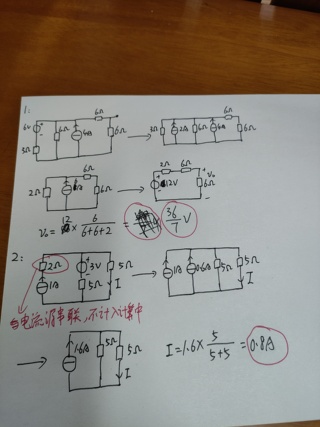 1:
6Ω 6Ω
6V 6Ω 4A 6Ω
3Ω
6Ω
3Ω 2A 6Ω 4A 6Ω
6Ω 2Ω 6Ω
2Ω 6Ω 12V 6Ω V₀
V₀ = 12 × 6/(6+6+2) = 36/7 V
2:
2Ω 3V 5Ω
1A 5Ω I
1A 0.6A 5Ω 5Ω I
与电流源串联,不计入计算中
1.6A 5Ω 5Ω I
I=1.6× 5/(5+5) =0.8A